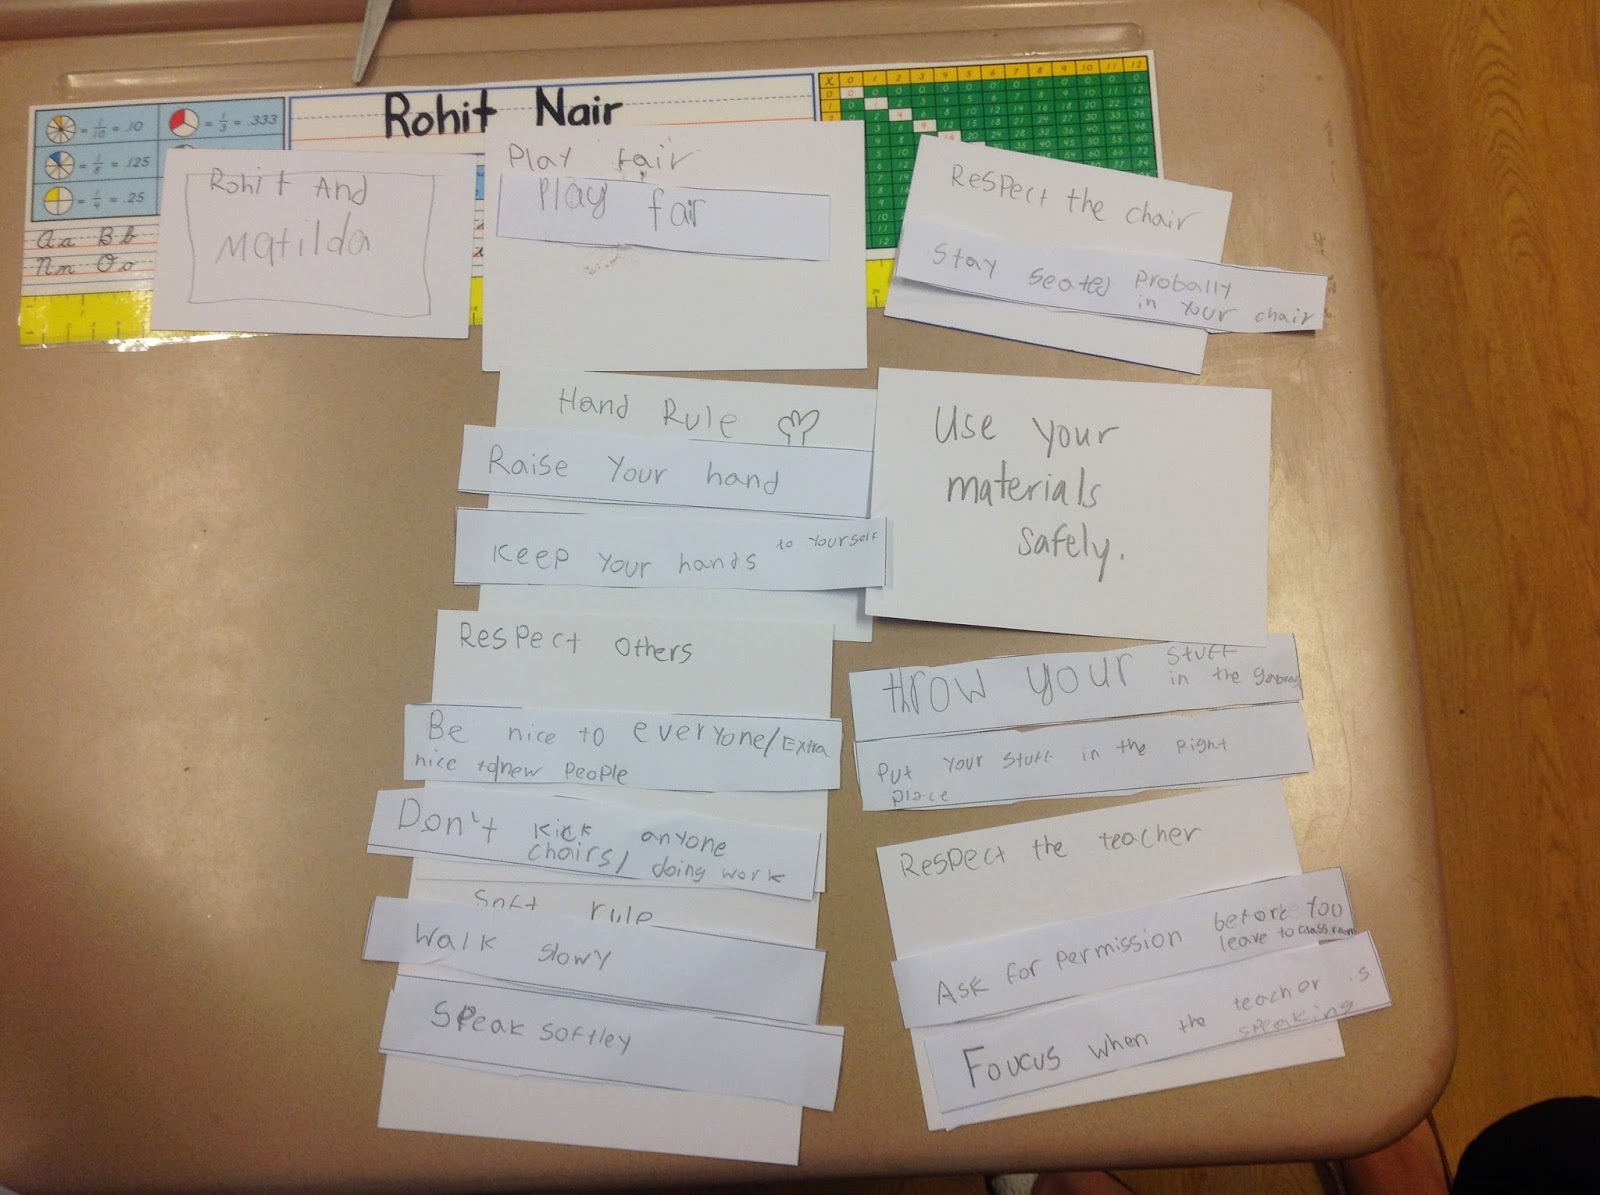 Rohit Nair
= 1/10 = .10
= 1/3 = .333
= 1/8 = .125
= 1/4 = .25
Aa Bb
Nn Oo
X 0 1 2 3 4 5 6 7 8 9 10 11 12
Rohit And
Matilda
Play fair
Play fair
Respect the chair
Stay seated probally
in your chair
Hand Rule
Raise Your hand
Keep Your hands to Yourself
Use your
materials
safely.
Respect others
Be nice to everyone/Extra
nice to new people
Don't kick anyone
chairs/ doing work
Soft rule
Walk slowy
Speak softley
throw your stuff
in the
Put your stuff in the right
place
Respect the teacher
Ask for permission before you
leave to classroom
Foucus when the teacher is
speaking